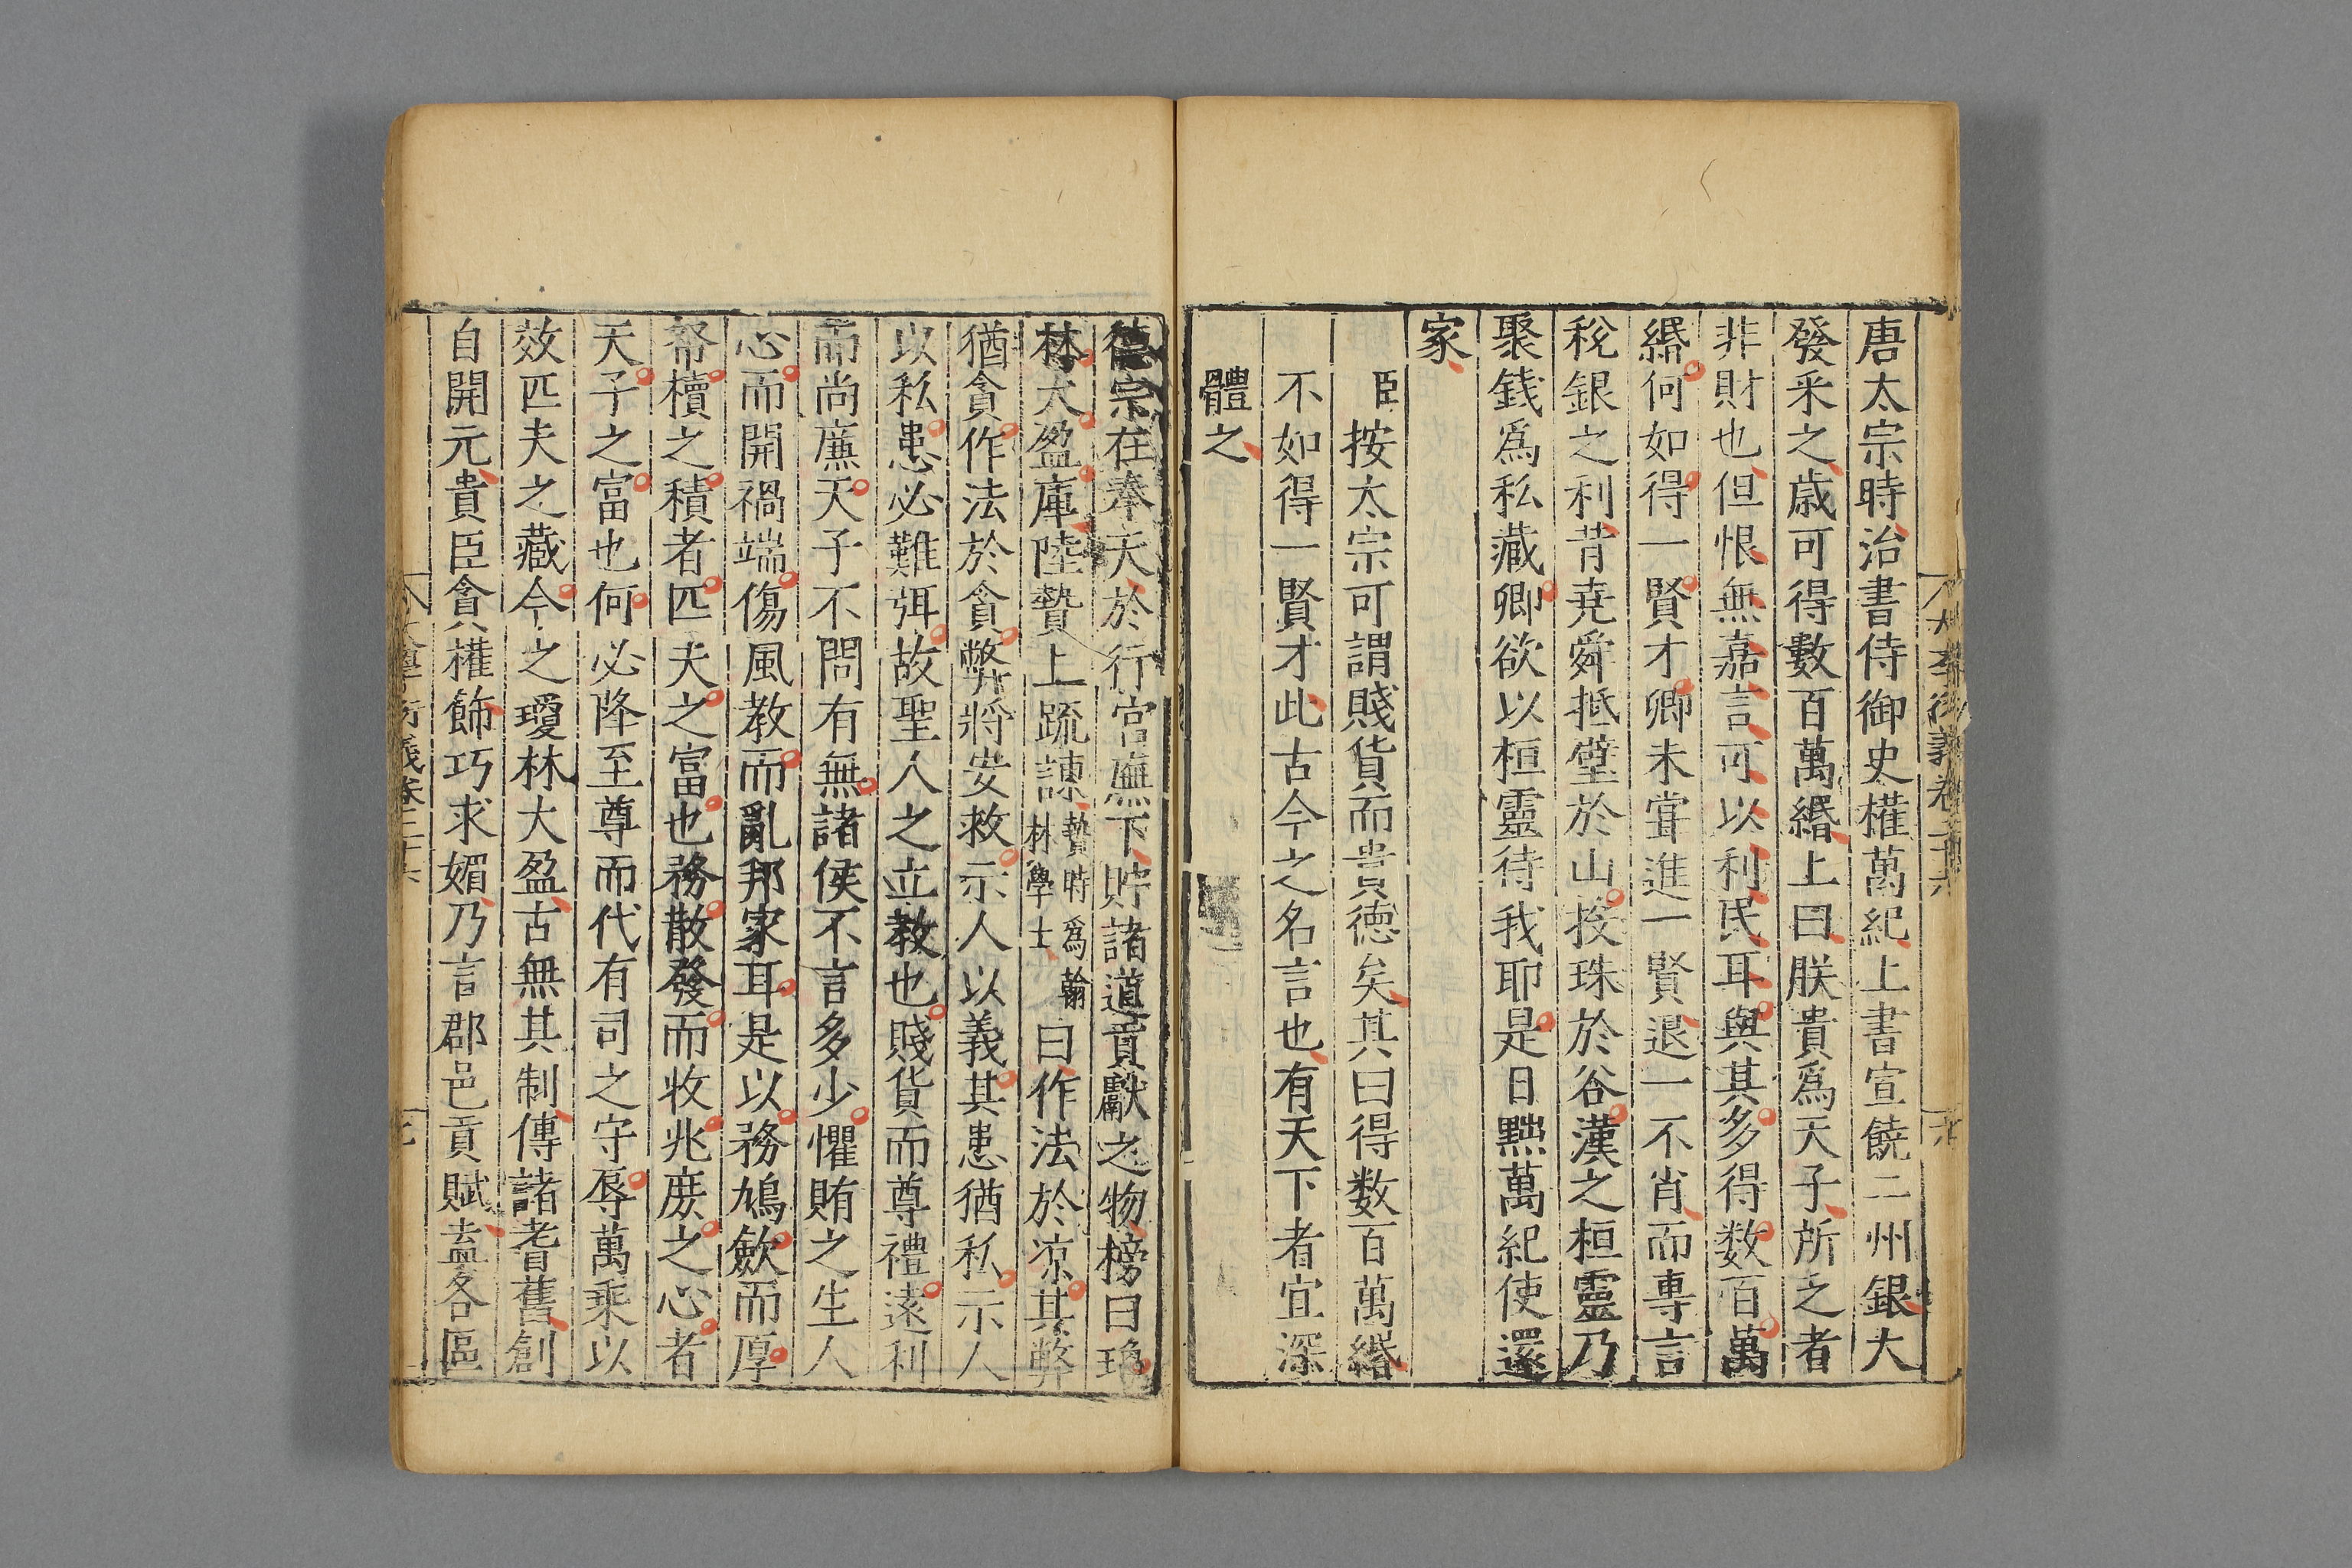 唐太宗時治書侍御史權萬紀上書宣饒二州銀大
發采之歲可得數百萬緡上曰朕貴爲天子所之者
非財也但恨無嘉言可以利民耳與其多得数百萬
緡何如得一賢才卿未甞進一賢退一不肖而專言
稅銀之利昔堯舜抵璧於山投珠於谷漢之桓靈乃
聚錢爲私藏卿欲以桓靈待我耶是日黜萬紀使還
家
臣按太宗可謂賤貨而貴德矣其曰得数百萬緡
不如得一賢才此古今之名言也有天下者宜深
體之
德宗在奉天於行宮廡下貯諸道貢獻之物榜曰瓊
林大盈庫陸贄上疏諫贄時爲翰林學士曰作法於凉其弊
猶貪作法於貪弊將安救示人以義其患猶私示人
以私患必難弭故聖人之立教也賤貨而尊禮遠利
而尚廉天子不問有無諸侯不言多少懼賄之生人
心而開禍端傷風教而亂邦家耳是以務鳩斂而厚
帑櫝之積者匹夫之富也務散發而收兆庶之心者
天子之富也何必降至尊而代有司之守辱萬乘以
效匹夫之藏今之瓊林大盈古無其制傳諸耆舊創
自開元貴臣貪權飾巧求媚乃言郡邑貢賦盍各區
大學衍義卷三十六